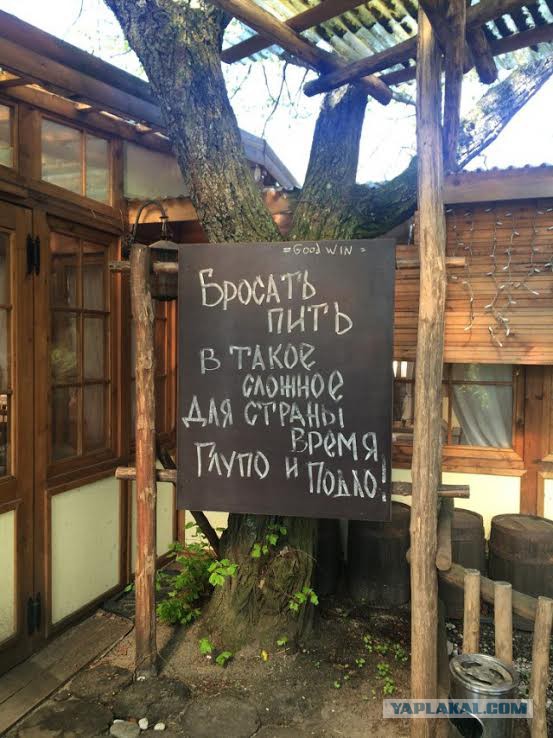 =GooD WiN=
Бросать
пить
в такое
сложное
для страны
время
Глупо и Подло!
YAPLAKAL.COM